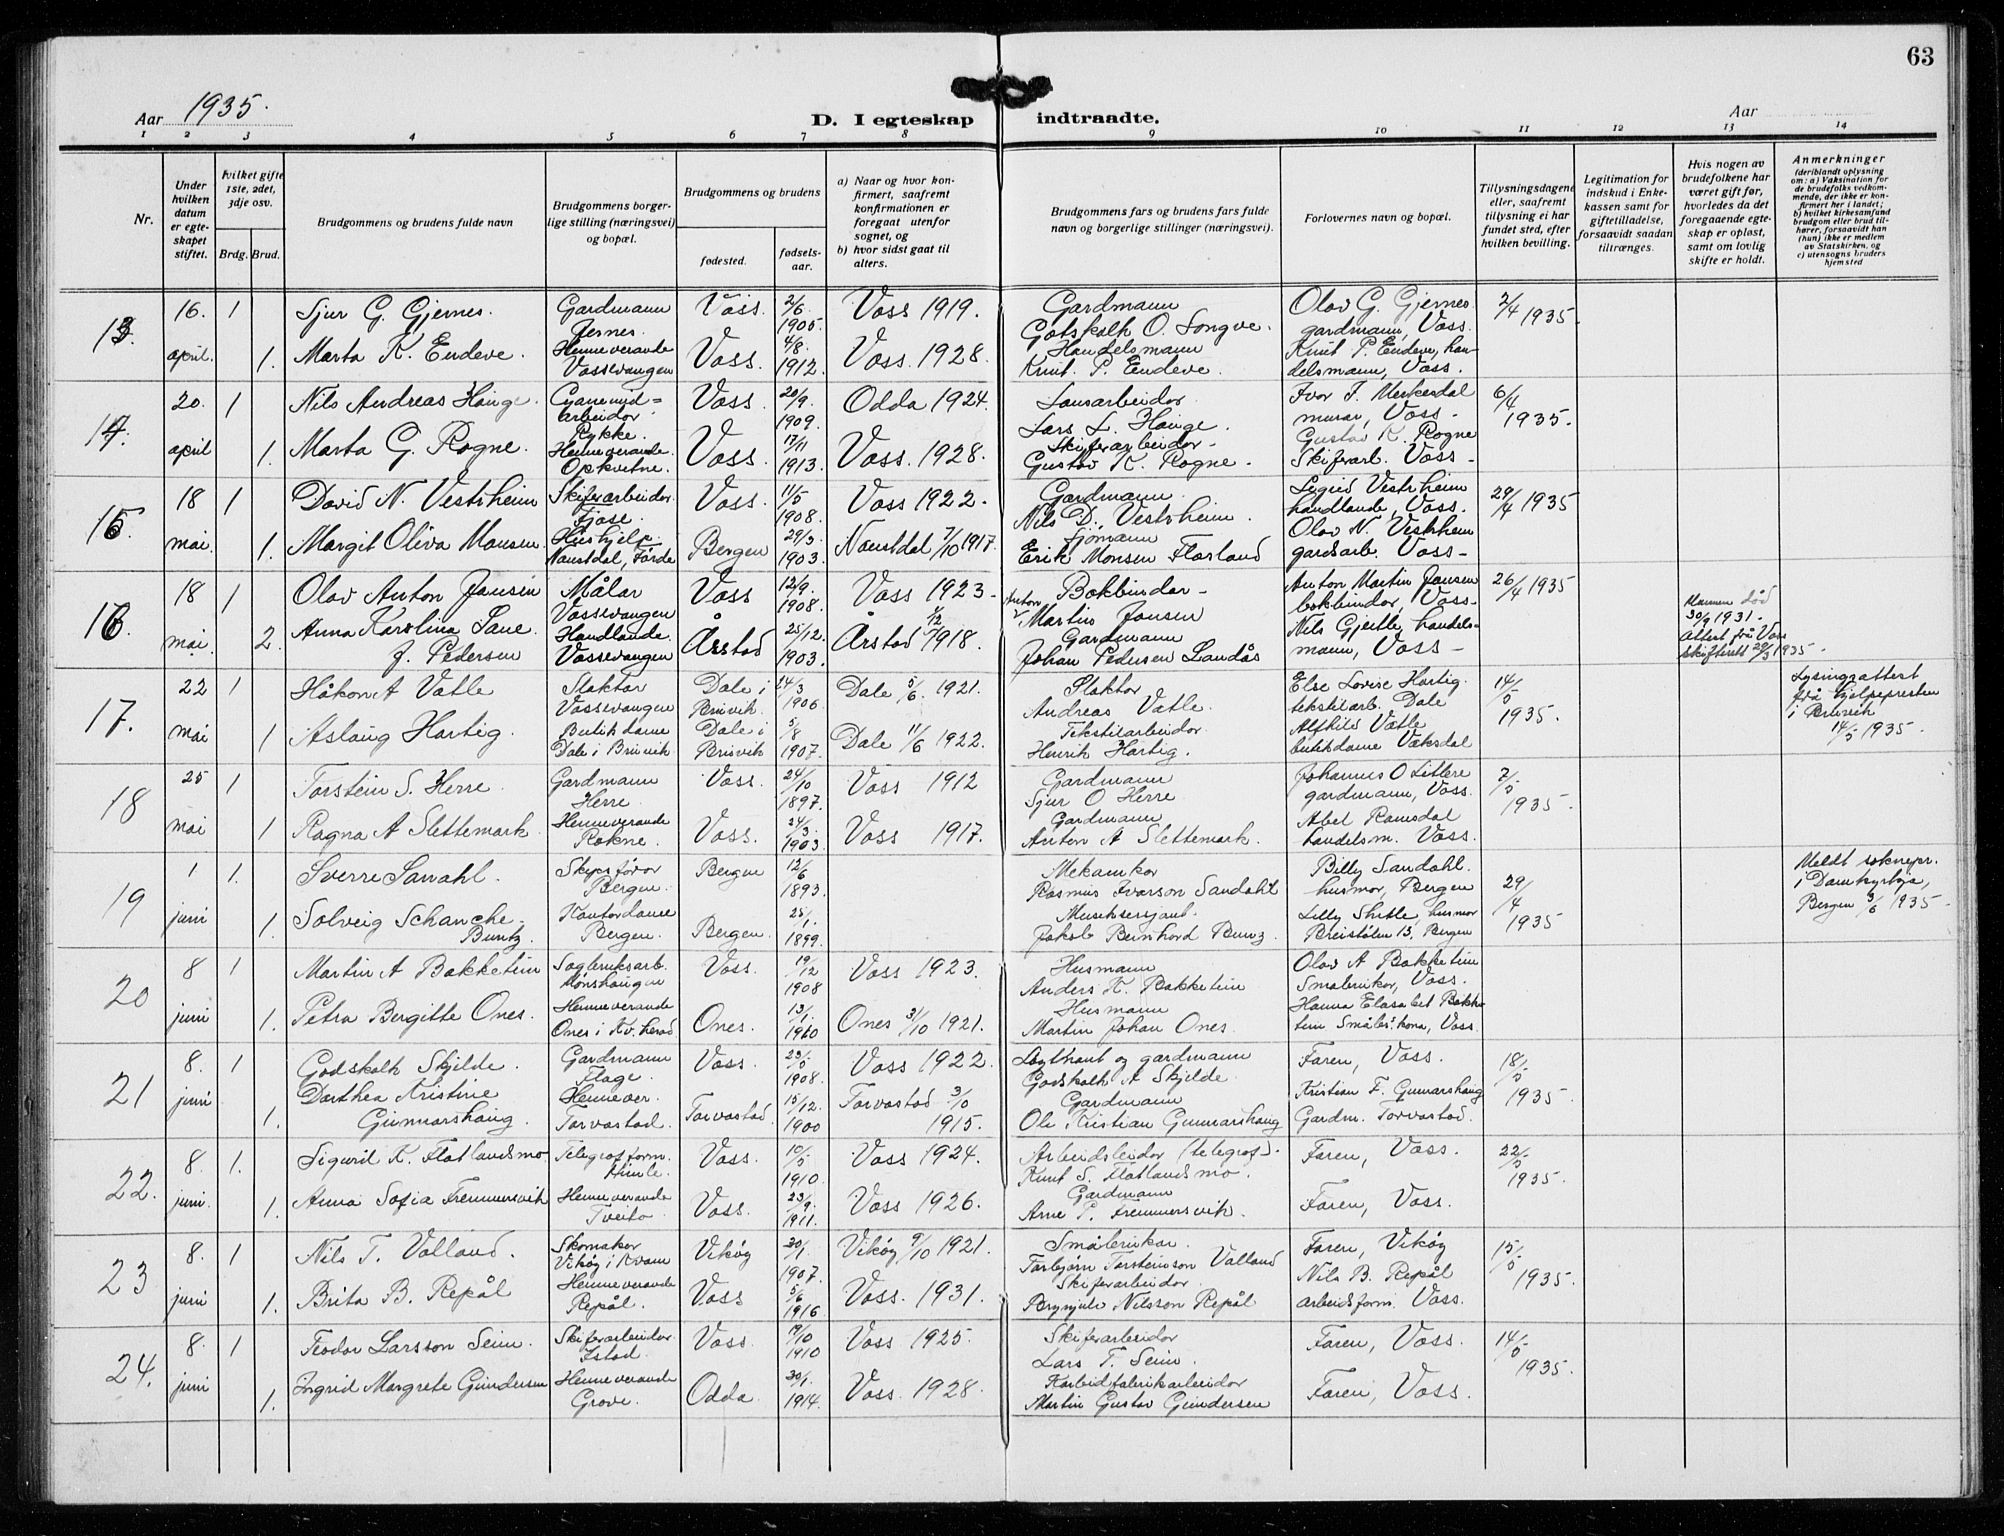 63
Aar 1935.
D. I egteskap indtraadte.
Aar
1 2 3 4 5 6 7 8 9 10 11 12 13 14
Nr.
Under hvilken datum er egteskapet stiftet.
Hvilket gifte 1ste, 2det, 3dje osv.
Brdg. Brud.
Brudgommens og brudens fulde navn
Brudgommens borgerlige stilling (næringsvei) og bopæl.
Brudgommens og brudens
fødested.
fødselsaar.
a) Naar og hvor konfirmert, saafremt konfirmationen er foregaat utenfor sognet, og
b) hvor sidst gaat til alters.
Brudgommens fars og brudens fars fulde navn og borgerlige stillinger (næringsvei).
Forlovernes navn og bopæl.
Tillysningsdagene eller, saafremt tillysning ei har fundet sted, efter hvilken bevilling.
Legitimation for indskud i Enkekassen samt for giftetilladelse, forsaavidt saadan tiltrænges.
Hvis nogen av brudefolkene har været gift før, hvorledes da det foregaaende egteskap er opløst, samt om lovlig skifte er holdt.
Anmerkninger (deriblandt oplysning om: a) Vaksination for de brudefolks vedkommende, der ikke er konfirmert her i landet; b) hvilket kirkesamfund brudgom eller brud tilhører, forsaavidt han (hun) ikke er medlem av Statskirken, og c) utensogns bruders hjemsted
13. 16. april. 1
Sjur G. Gjernes. Gardmann Jernes. Voss. 2/6 1905. Voss 1919. Gardmann Gotskalk O. Songve. Olav G. Gjernes gardmann, Voss. 2/4 1935.
1. Marta K. Endeve. Heimeverande Vossevangen Voss. 4/8 1912. Voss. 1928. Handelsmann Knut P. Endeve. Knut P. Endeve, handelsmann, Voss.
14. 20. april 1
Nils Andreas Hauge. Cyanamidarbeidor Voss. 20/9 1909. Odda 1924. Lausarbeidor Lars L. Hauge. murar, Voss. 6/4 1935.
1. Marta G. Rogne. Heimeverande. Opkvitne. Voss. 17/11 1913. Voss. 1928. Skiferarbeidor. Gustav K. Rogne. Gustav K. Rogne Skiferarb. Voss.
15. 18 mai. 1
David N. Vestrheim Skiferarbeidor. Tjose. Voss. 11/5 1908. Voss 1922. Gardmann. Nils D. Vestrheim. Sigrid Vestrheim handlande, Voss. 29/4 1935
1. Margit Oliva Monsen. Hushjelp. Naustdal, Førde Bergen 29/3 1903. Naustdal 7/10 1917. Sjømann Erik Monsen Florland Olav N. Vestrheim gardsarb. Voss.
16. 18 mai. 1
Olav Anton Jansen Målar Vossevangen Voss 12/9 1908. Voss 1923. Bokbindar. Anton Martin Jansen Anton Martin Jansen bokbindar, Voss. 26/4 1935
2. Anna Karolina Lane. f. Pedersen Handlande. Vossevangen Årstad 25/12 1903. Årstad 1/12 1918. Gardmann Johan Pedersen Landås Nils Gjelle, handelsmann, Voss. Mannen død 30/9 1931. Attest frå Voss skifterett 29/3 1935.
17. 22 mai 1
Håkon A Vatle Slaktar Vossevangen Dale i Bruvik. 24/3 1906. Dale 5/6 1921. Slaktar Andreas Vatle. Else Lovise Hartig. tekstilarb. Dale 14/5 1935. Lysingsattest frå hjelpepresten i Bruvik 14/5 1935.
1 Aslaug Hartig. Butikdame Dale i Bruvik Dale i Bruvik 5/8 1907. Dale 11/6 1922. Tekstilarbeidor. Henrik Hartig. Alfhild Vatle butikdame Vaksdal
18 25 mai 1
Torstein S. Herre. Gardmann Herre. Voss. 24/10 1897. Voss 1912 Gardmann Sjur O Herre Johannes O Littere gardmann, Voss. 7/5 1935.
1 Ragna A Slettemark. Heimeverande Rokne. Voss. 24/3 1903. Voss 1917. Gardmann Anton A Slettemark. Abel Ramsdal handelsm. Voss.
19 1 juni 1.
Sverre Sandahl. Skipsførar Bergen. Bergen 12/6 1893. Mekanikar Rasmus Ivarson Sandahl Billy Sandahl. husmor, Bergen 29/4 1935 Meldt sokneprest i Domkyrkja, Bergen 3/6 1935.
1. Solveig Schanche Buntz. Kontordame Bergen. Bergen. 25/1 1899. Musiksersjant. Jakob Bernhard Bunz. Lilly Skitle, husmor Breistølen 13, Bergen
20 8 juni 1
Martin A Bakketun Saglaruksarb. Mønshaugen Voss. 19/12 1908 Voss 1923. Husmann Anders K. Bakketun Olav A Bakketun Småbrukar, Voss.
1. Petra Bergitte Ones. Heimeverande Ones i Kv.herad Ones. 13/1 1910 Ones 31/10 1921. Husmann Martin Johan Ones. Hanna Elesabet Bakketun Småbr. kona, Voss.
21 8. juni 1
Godskalk Skjelde. Gardmann Flage. Voss. 23/5 1908. Voss 1922. Løytnant og gardmann Godskalk A Skjelde. Faren, Voss. 18/5 1935.
1. Dorthea Kristine Gunnarshaug. Heimever. Torvastad. Torvastad. 15/12 1900 Torvastad 3/10 1915. Gardmann Ole Kristian Gunnarshaug Kristian F. Gunnarshaug Gardm. Torvastad.
22. 8. juni. 1.
Sigurd K. Flatlandsmo Telegrafform. Himle. Voss. 10/5 1910. Voss 1924. Arbeidsleidar (telegraf). Knut S. Flatlandsmo. Faren, Voss. 22/5 1935.
1. Anna Sofia Fremmersvik Heimeverande Tveito. Voss. 23/9 1911. Voss 1926. Gardmann Arne P. Fremmersvik. Faren, Voss.
23 8. juni 1
Nils T. Valland. Skomakar Vikøy i Kvam Vikøy 30/1 1907. Vikøy 9/10 1921. Småbrukar. Torbjørn Torsteinson Valland Faren, Vikøy 15/5 1935.
1. Brita B. Repål Heimeverande Repål. Voss 5/6 1916 Voss. 1931. Skiferarbeidor. Brynjulv Nilsson Repål Nils B. Repål arbeidsform. Voss.
24. 8. juni 1
Teodor Larsson Seim. Skiferarbeidor. Istad. Voss. 9/10 1910 Voss 1925. Skiferarbeidor Lars T. Seim. Faren, Voss. 14/5 1935.
1. Ingrid Margrete Gundersen Heimeverande Grove. Odda. 30/1 1914. Voss. 1928. Karbidfabrikarbeidor Martin Gustav Gundersen Faren, Voss.